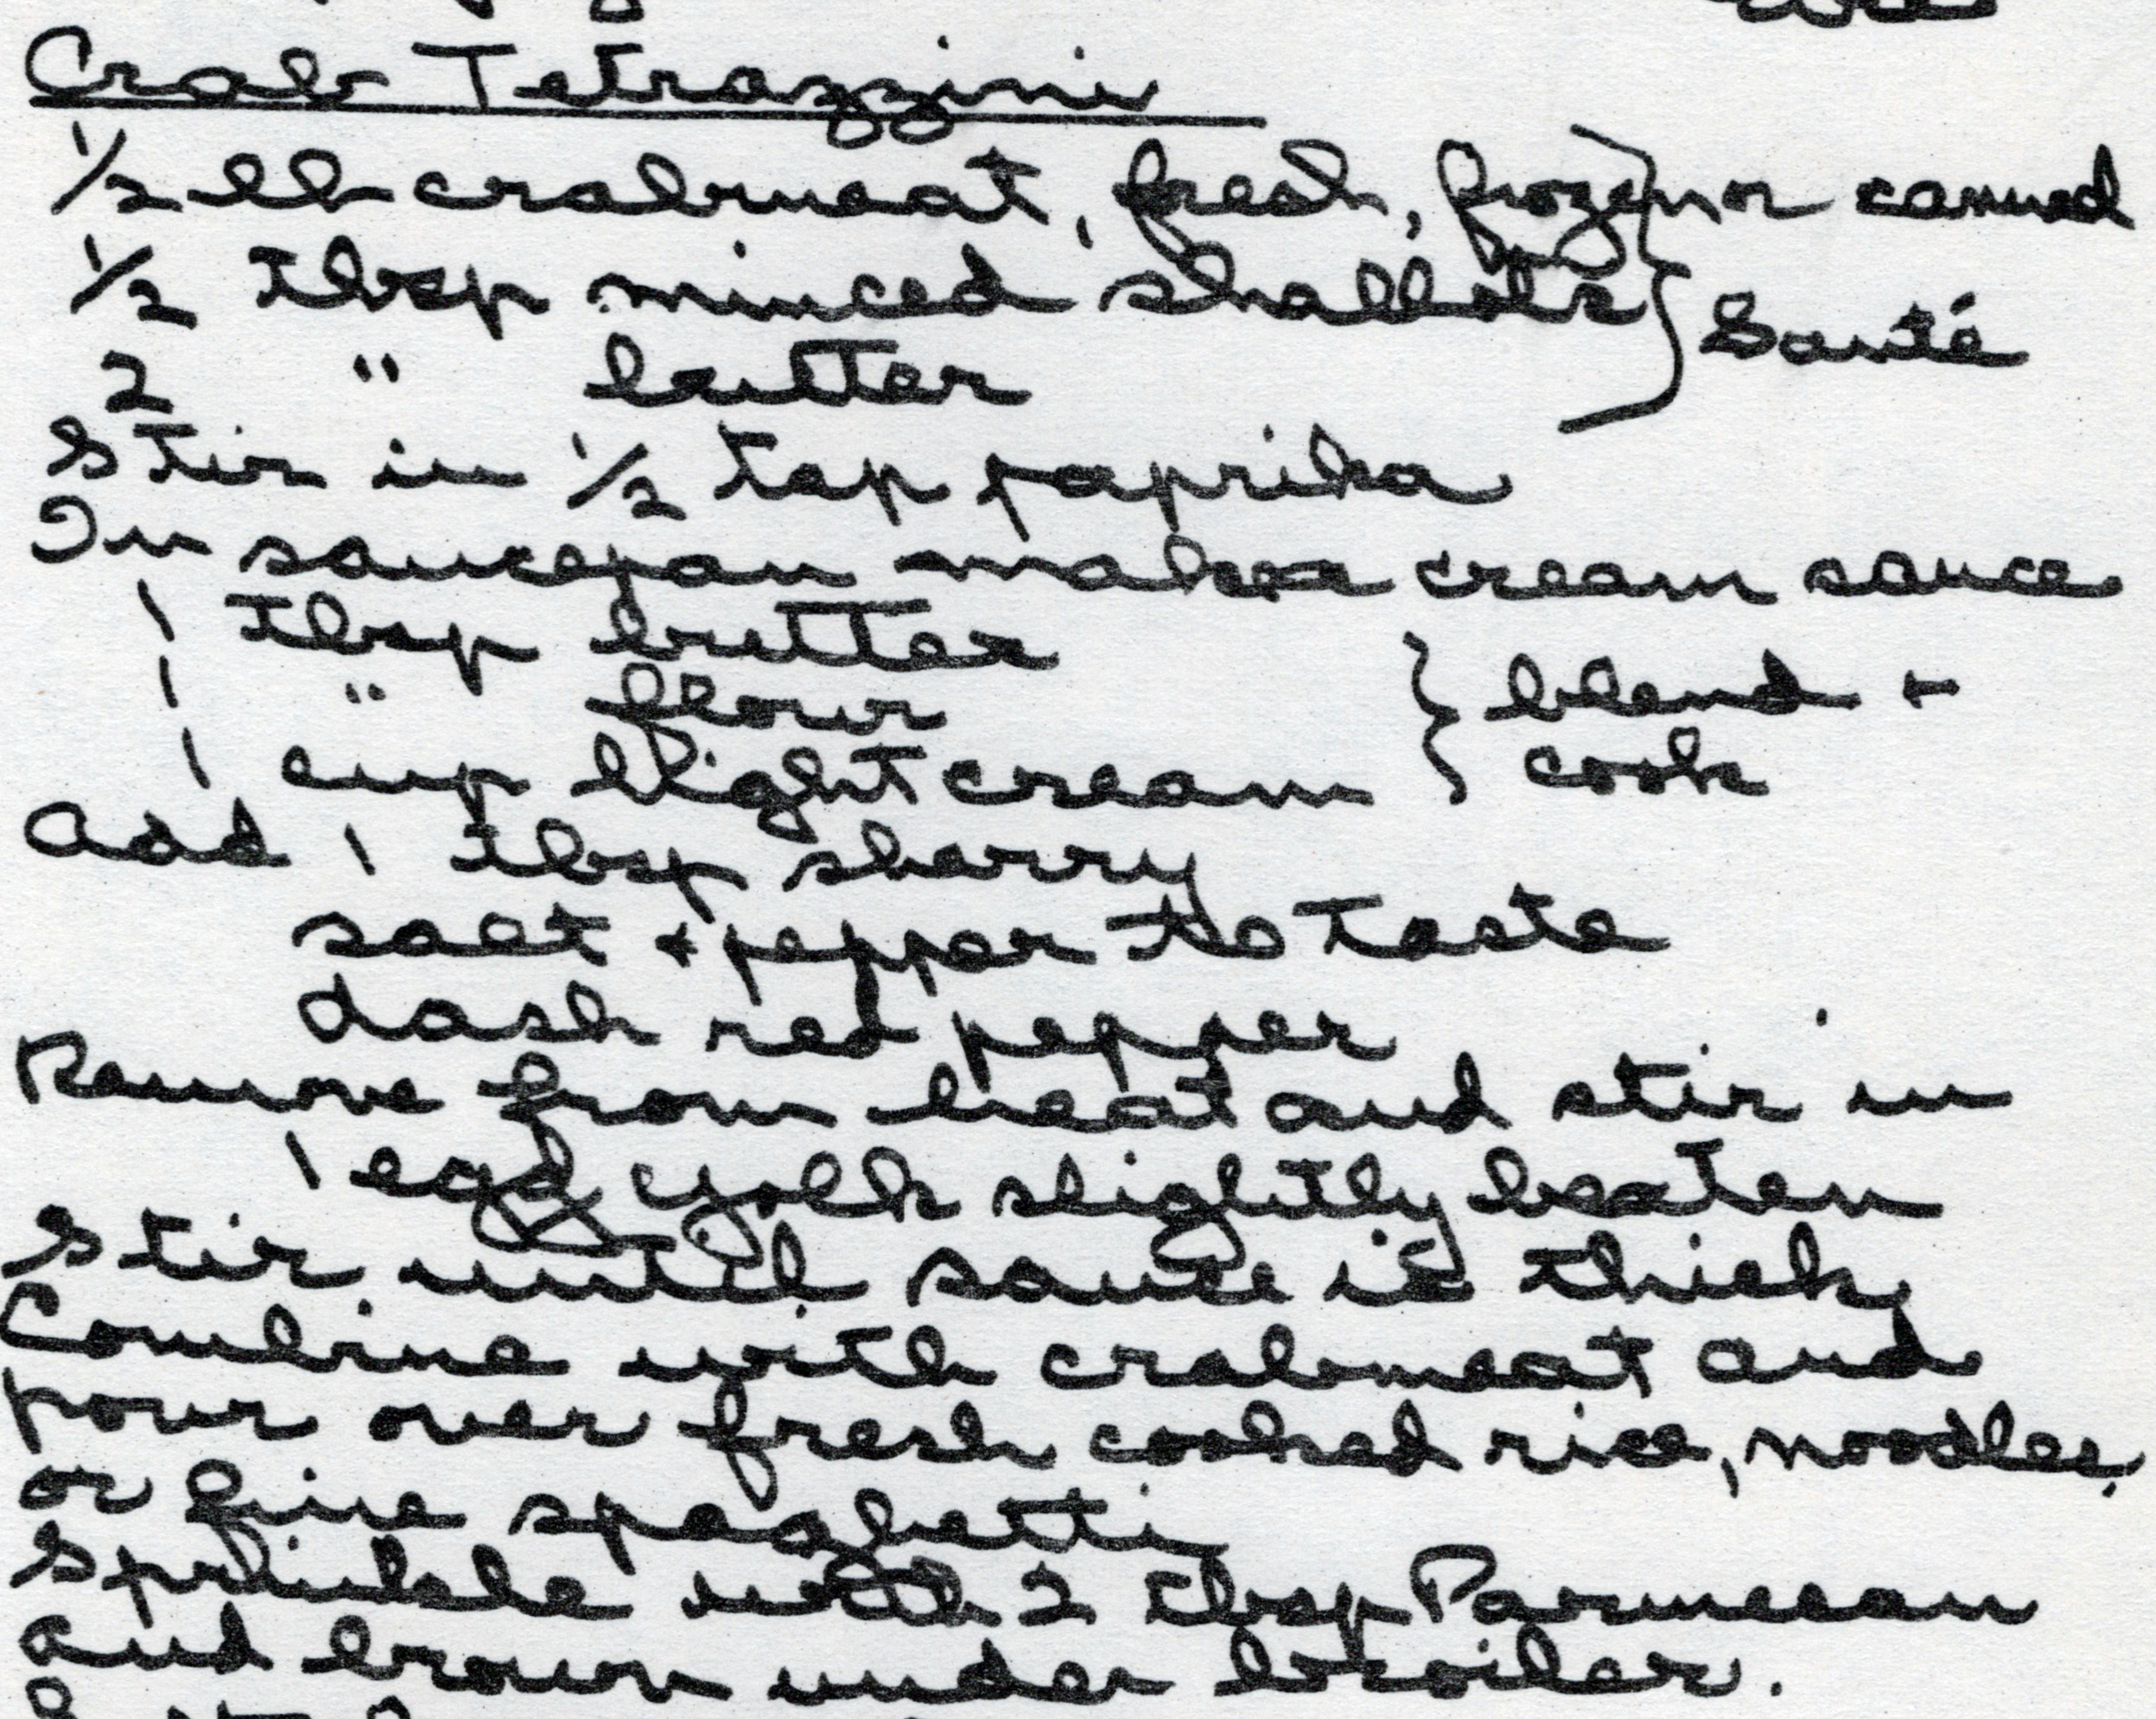 Crab Tetrazzini
1/2 lb crabmeat, fresh, frozen or canned
1/2 Tbsp minced shallots
2 " butter } Sauté
Stir in 1/2 tsp paprika
In saucepan make cream sauce
1 Tbsp butter
1 " flour } blend +
1 cup light cream } cook
Add 1 Tbsp sherry
salt + pepper to taste
dash red pepper
Remove from heat and stir in
1 egg yolk slightly beaten
Stir until sauce is thick
Combine with crabmeat and
pour over fresh cooked rice, noodles,
or fine spaghetti
Sprinkle with 2 Tbsp Parmesan
and brown under broiler.